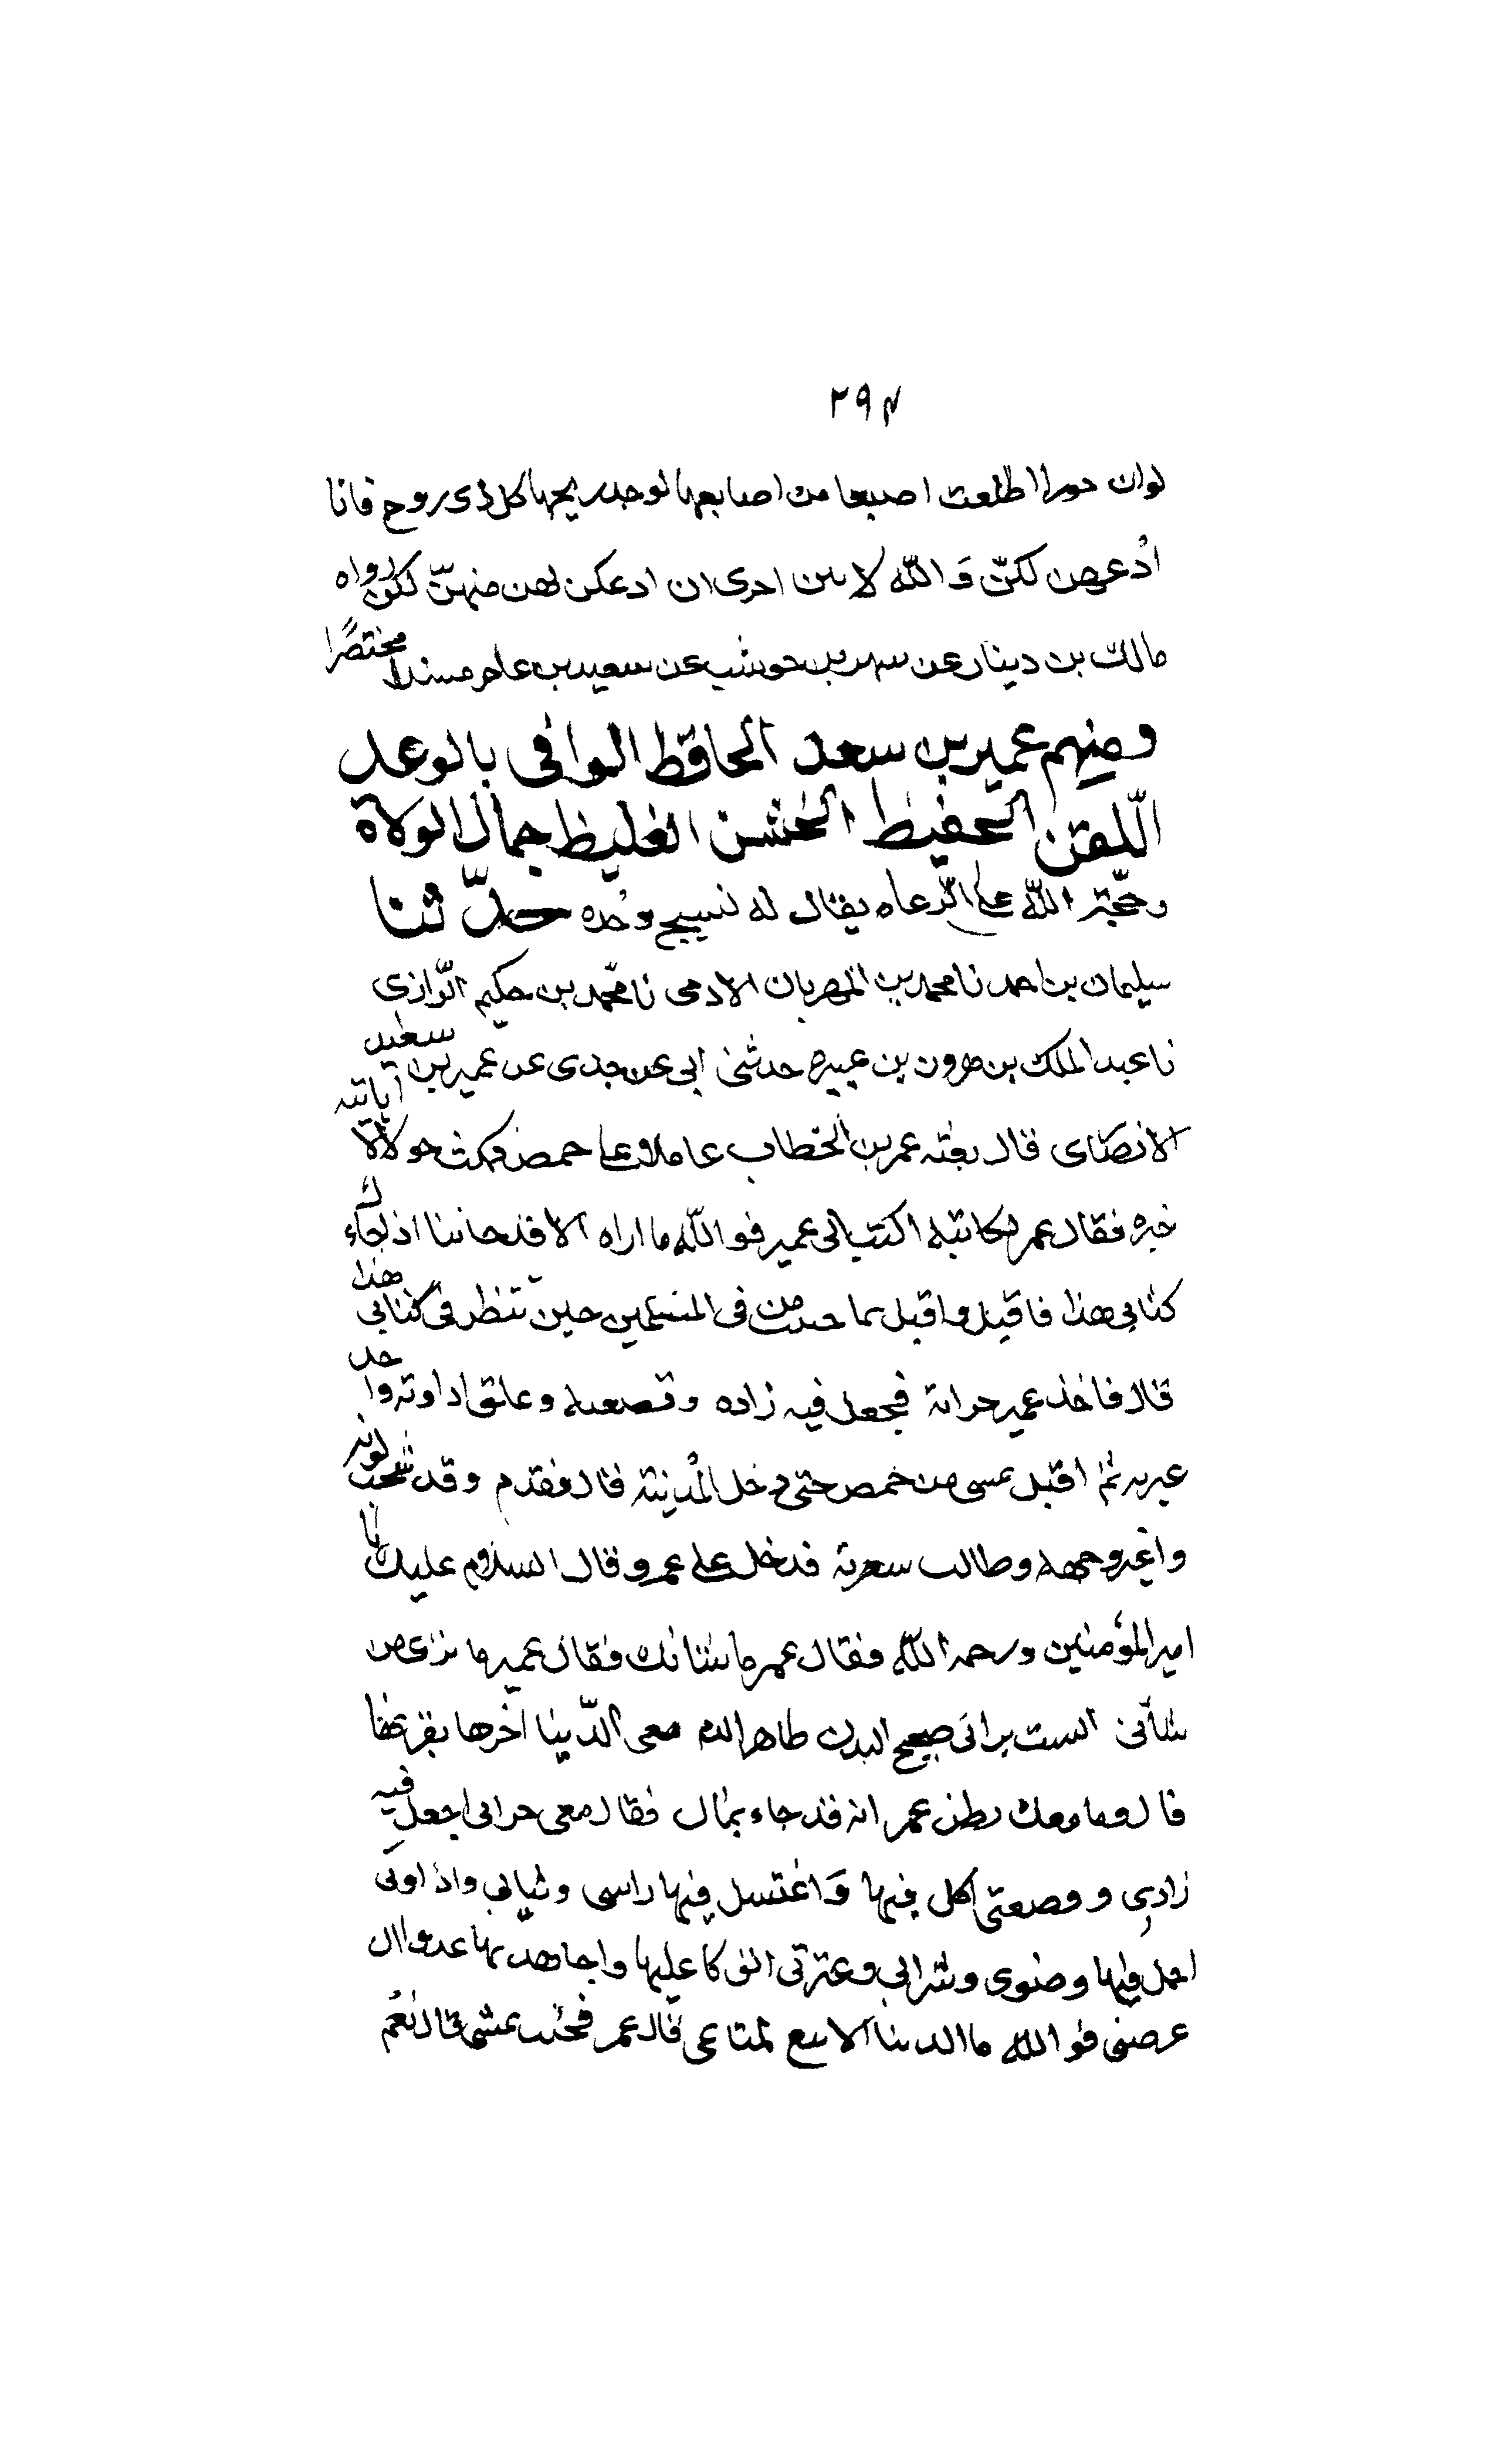 ٢٩٧
لوان حورا اطلعت اصبعا من اصابعها لوجد ريحها كل ذى روح فانا
ادعهن لكنّ وَ اللّه لا نتن احرى ان ادعكن لهن منهنّ لكن رواه
مالك بن دينار عن شهر بن حوشب عن سعيد بن عامر مسندا مختصرًا
ومنهم عمير بن سعد الحافظ الوافى بالوعد
اللّقن الحفيظ الخشن الغليظ جمال الولاة
وحجّة اللّه على الرّعاه يقال له نسيج وحُده حدّثنا
سليمان بن احمد نا محمد بن المهربان الادمى نا محمّد بن حكيم الرّازى
نا عبد الملك بن هرون بن عبيره حدثنى ابى عن جدى عن عمير بن سعيد
الانصاى قال بعثه عمر بن الخطاب عاملا على حمص فمكث حولا لا ياتيه
خبره فقال عمر لكاتبه اكتب الى عمير فوا اللّه ما اراه الا قد خاننا اذا جاءك
كتابى هذا فاقبل واقبل بما حبيت من فى المسلمين حين تنظر فى كتابى هذا
قال فاخذ عمير حرابة فجعل فيه زاده وقصعته وعلق اداوته واخذ
عنزته ثم اقبل عسى من حمص حتى دخل المُدينة قال فقدم وقد شحب لونه
واغبر وجهه وطالت شعرته فدخل على عمر وقال السلام عليك يا
امير المؤمنين ورحمة اللّه فقال عمر ما شانك فقال عمير ما تزى من
شأنى الست برانى صحيح البدن طاهر الدم معى الدّينا اخرها بقرنها
قال وما معك يظن عمر انه قد جاء بمال فقال معى جرابى اجعل فيه
زادى وقصعتى اكل فيها وَ اغتسل فيها راسى وثيابى واداوتى
احمل فيها وضوى وشرابى وعنزتى اتوكا عليها واجاهد بها عدوا ان
عرضنى فو اللّه ما الدنيا الا تبع لمتاعى قال عمر فجئت تمشى قال نعم